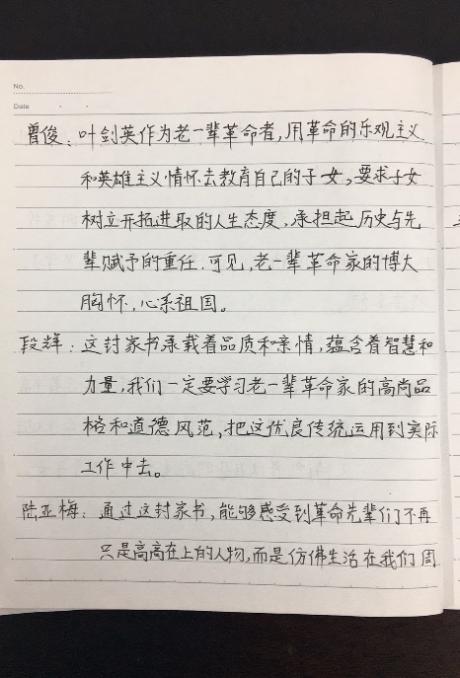 No.
Date
曾俊：叶剑英作为老一辈革命者，用革命的乐观主义
和英雄主义情怀去教育自己的子女，要求子女
树立开拓进取的人生态度，承担起历史与先
辈赋予的重任。可见，老一辈革命家的博大
胸怀，心系祖国。
段辉：这封家书承载着品质和亲情，蕴含着智慧和
力量，我们一定要学习老一辈革命家的高尚品
格和道德风范，把这优良传统运用到实际
工作中去。
陆亚梅：通过这封家书，能够感受到革命先辈们不再
只是高高在上的人物，而是仿佛生活在我们周